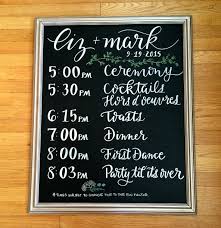 liz + mark
9·19·2015
5:00 PM Ceremony
5:30 PM Cocktails
Hors d'oeuvres
6:15 PM Toasts
7:00 PM Dinner
8:00 PM First Dance
8:03 PM Party til it's over